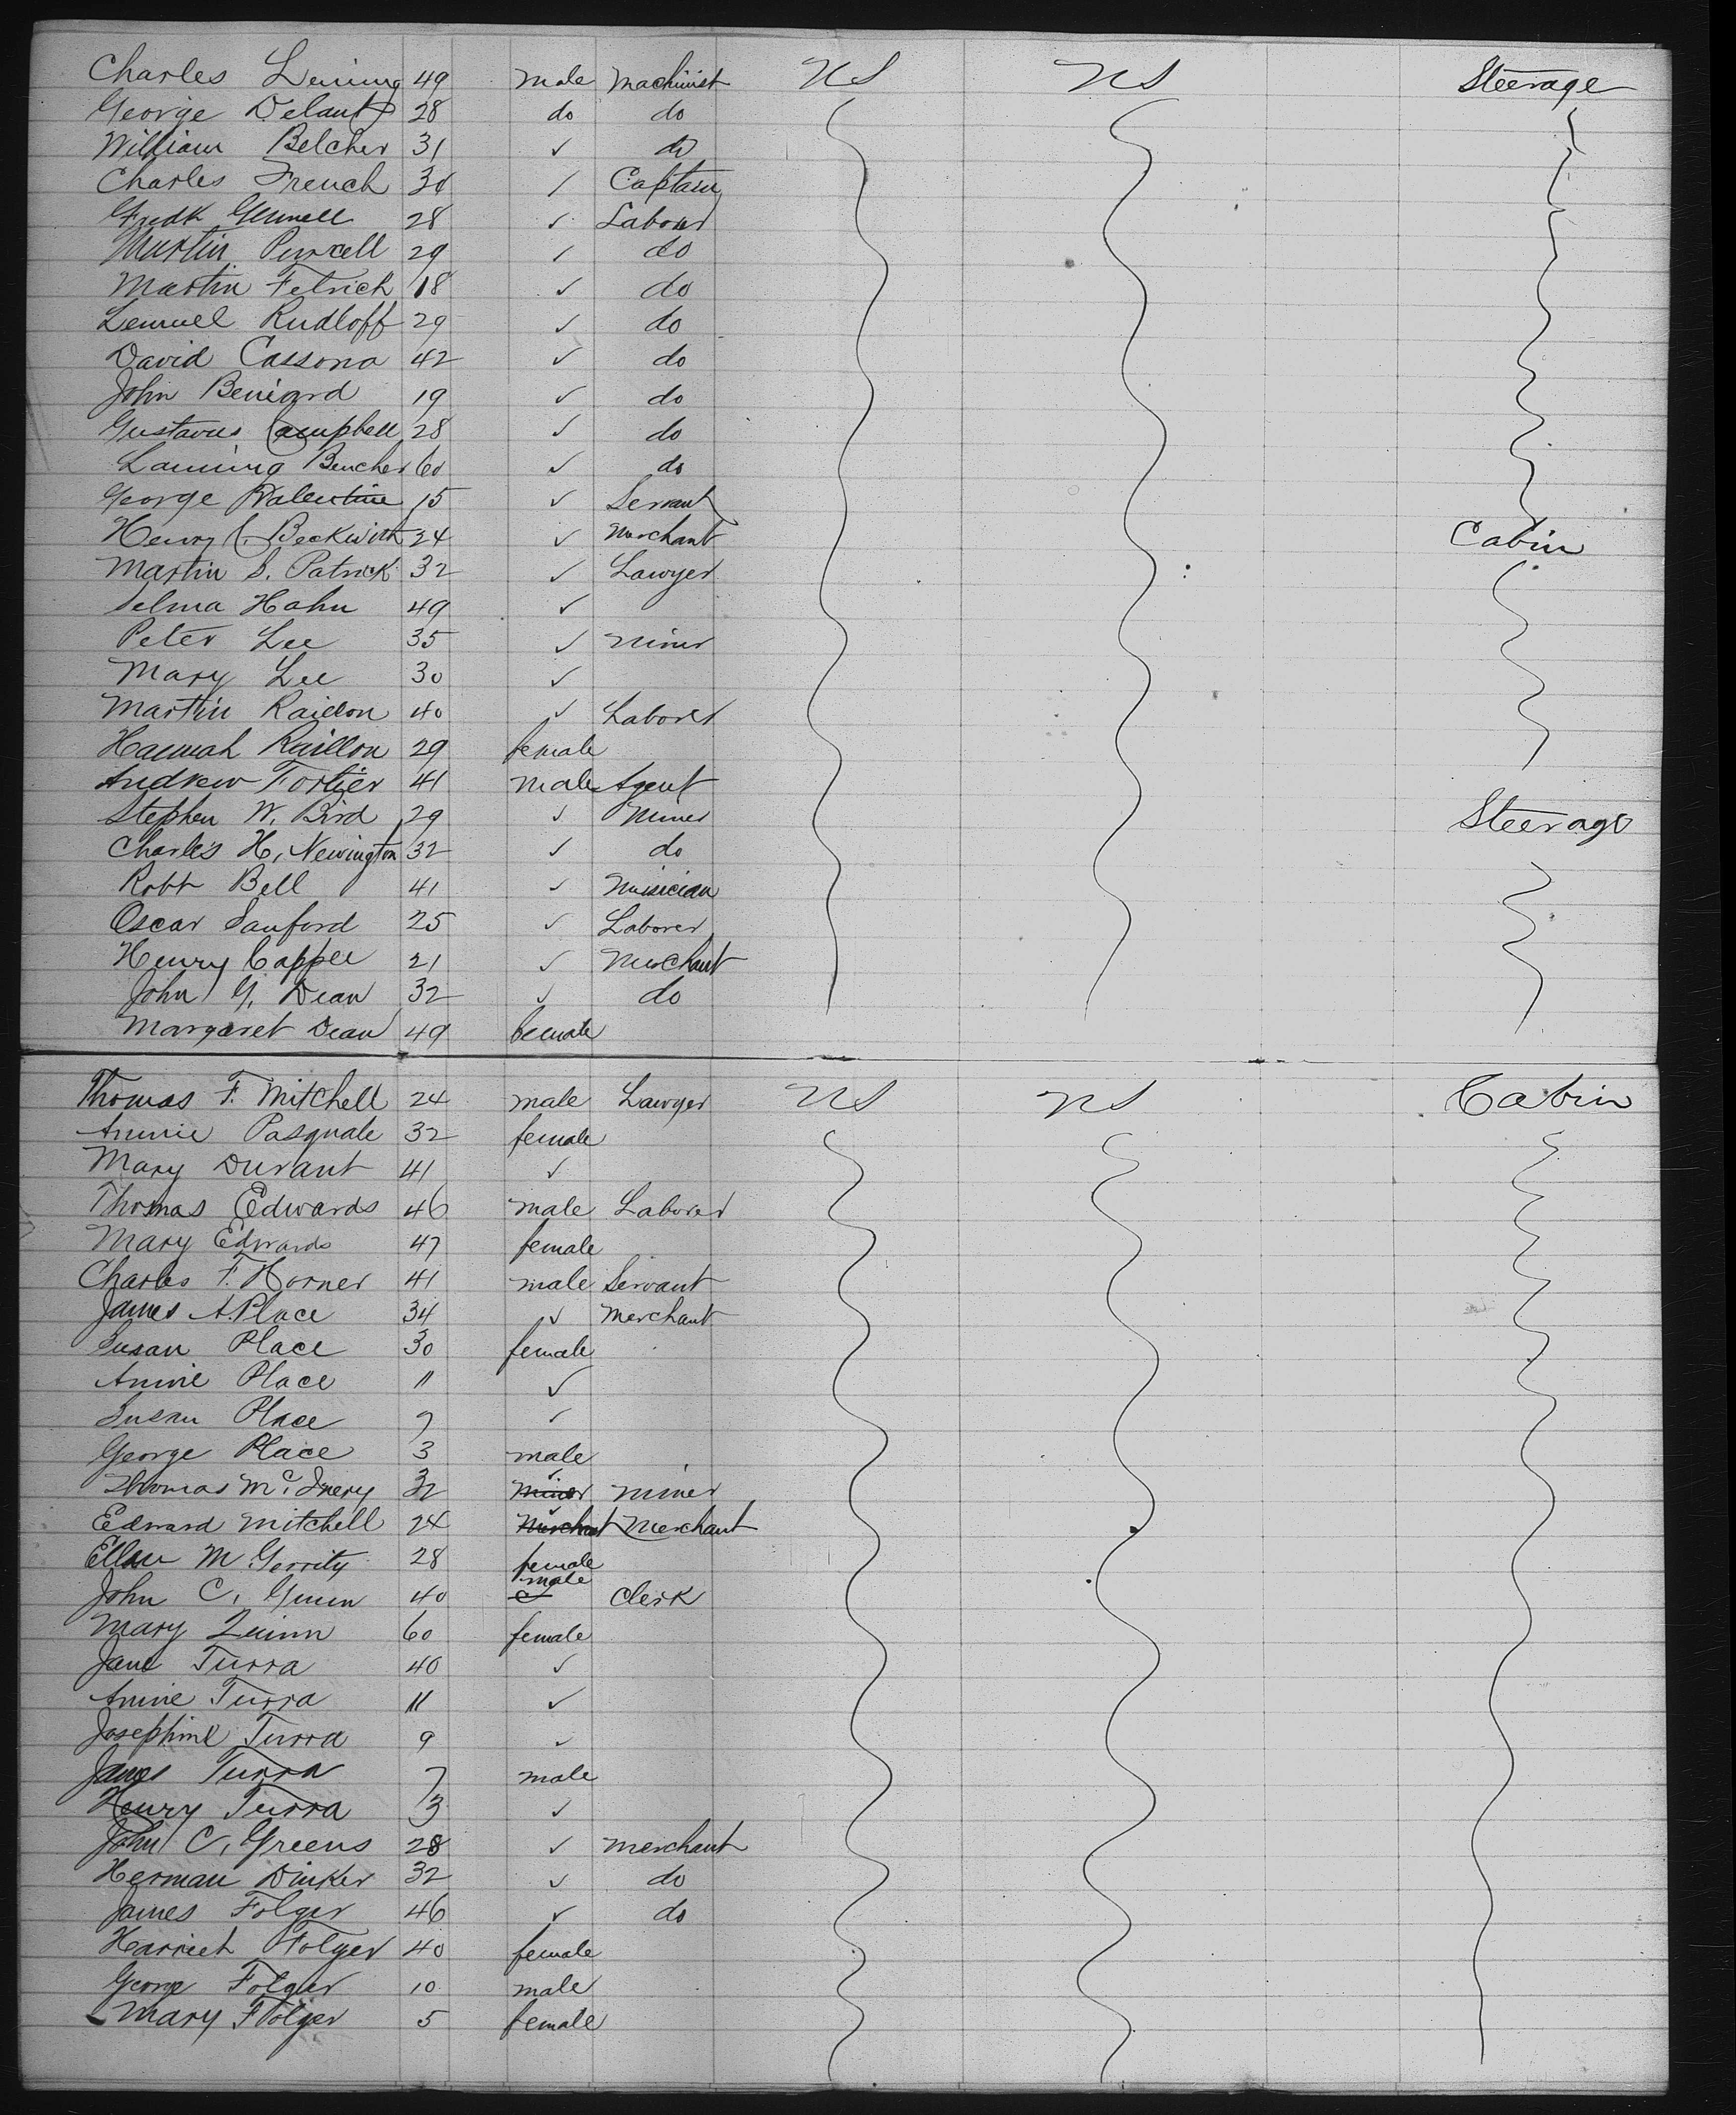 Charles Lening 49 male Machinist US US Steerage
George Delant 28 do do
William Belcher 31 ✓ do
Charles French 30 ✓ Captain
Fredk Gemmell 28 ✓ Laborer
Martin Purcell 29 ✓ do
Martin Fetrich 18 ✓ do
Lemuel Rudloff 29 ✓ do
David Cassona 42 ✓ do
John Beniard 19 ✓ do
Gustavus Campbell 28 ✓ do
Lanning Bencher 60 ✓ do
George Valentine 15 ✓ Servant
Henry C. Beckwith 24 ✓ Merchant Cabin
Martin S. Patrick 32 ✓ Lawyer
Selma Hahn 49 ✓
Peter Lee 35 ✓ Miner
Mary Lee 30 ✓
Martin Raillon 40 ✓ Laborer
Hannah Raillon 29 female
Andrew Fortier 41 male Agent
Stephen W. Bird 29 ✓ Miner Steerage
Charles H. Newington 32 ✓ do
Robt Bell 41 ✓ Musician
Oscar Sanford 25 ✓ Laborer
Henry Cappel 21 ✓ Merchant
John G. Dean 32 ✓ do
Margaret Dean 49 female
Thomas F. Mitchell 24 male Lawyer US US Cabin
Annie Pasquale 32 female
Mary Durant 41 ✓
Thomas Edwards 46 male Laborer
Mary Edwards 47 female
Charles F. Horner 41 male Servant
James A. Place 34 ✓ Merchant
Susan Place 30 female
Annie Place 11 ✓
Susan Place 7 ✓
George Place 3 male
Thomas McInery 32 ✓ Miner Miner
Edward Mitchell 24 ✓ Merchant Merchant
Ellen McGerrity 28 female
John C. Gunn 40 male Clerk
Mary Quinn 60 female
Jane Turra 40 ✓
Annie Turra 11 ✓
Josephine Turra 9 ✓
James Turra 7 male
Henry Turra 3 ✓
John C. Greens 28 ✓ Merchant
Herman Dinker 32 ✓ do
James Folger 46 ✓ do
Harriet Folger 40 female
George Folger 10 male
Mary Folger 5 female